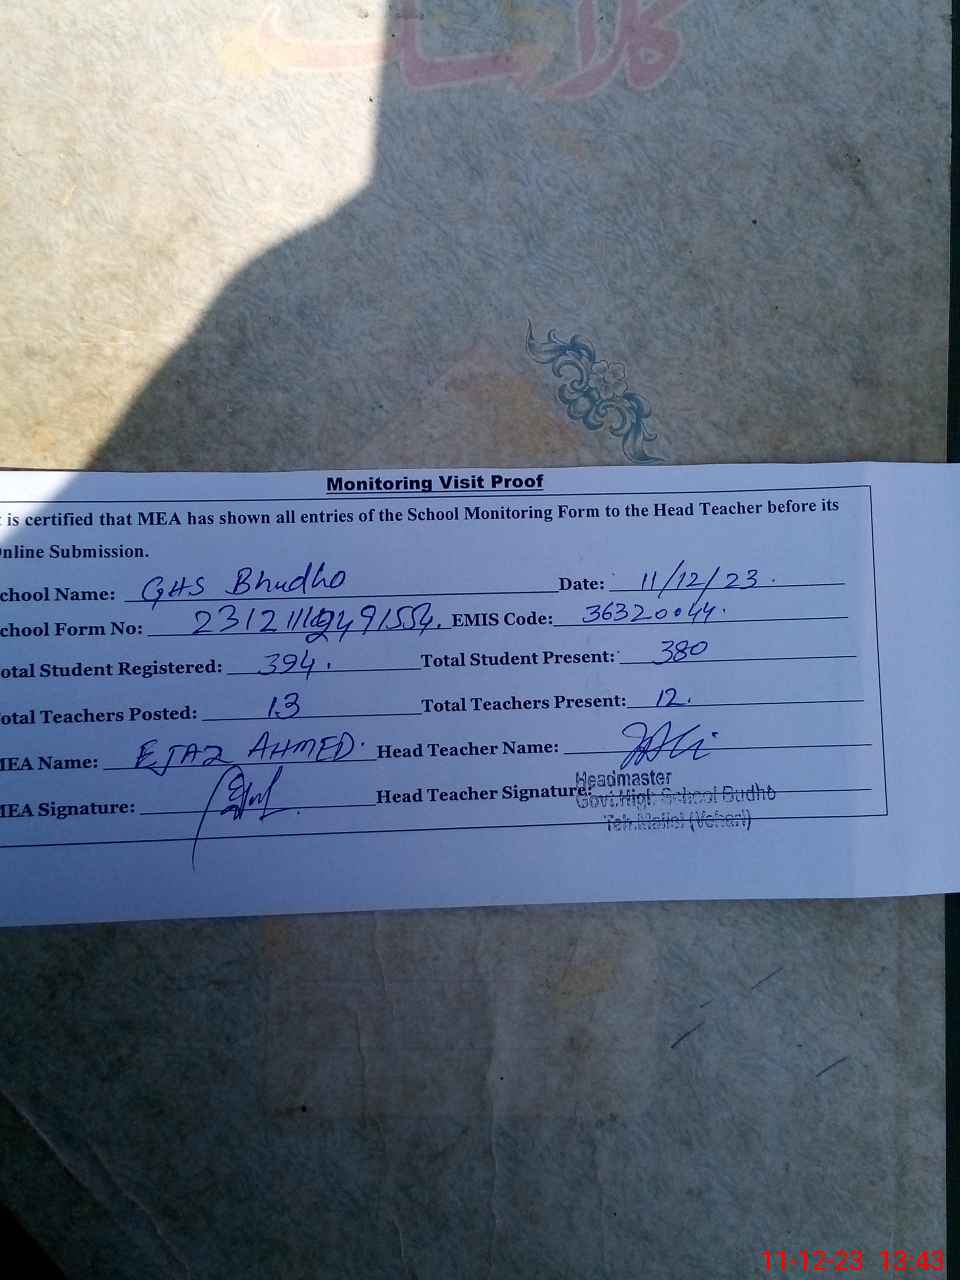 کلاسک
Monitoring Visit Proof
is certified that MEA has shown all entries of the School Monitoring Form to the Head Teacher before its
nline Submission.
chool Name: GHS Bhudho Date: 11/12/23.
chool Form No: EMIS Code: 36320044.
otal Student Registered: 394. Total Student Present: 380
otal Teachers Posted: 13 Total Teachers Present: 12.
MEA Name: EJAZ AHMED. Head Teacher Name:
MEA Signature: Head Teacher Signature:
Headmaster
Govt.High School Budho
Teh.Mailsi (Vehari)
11-12-23 13:43